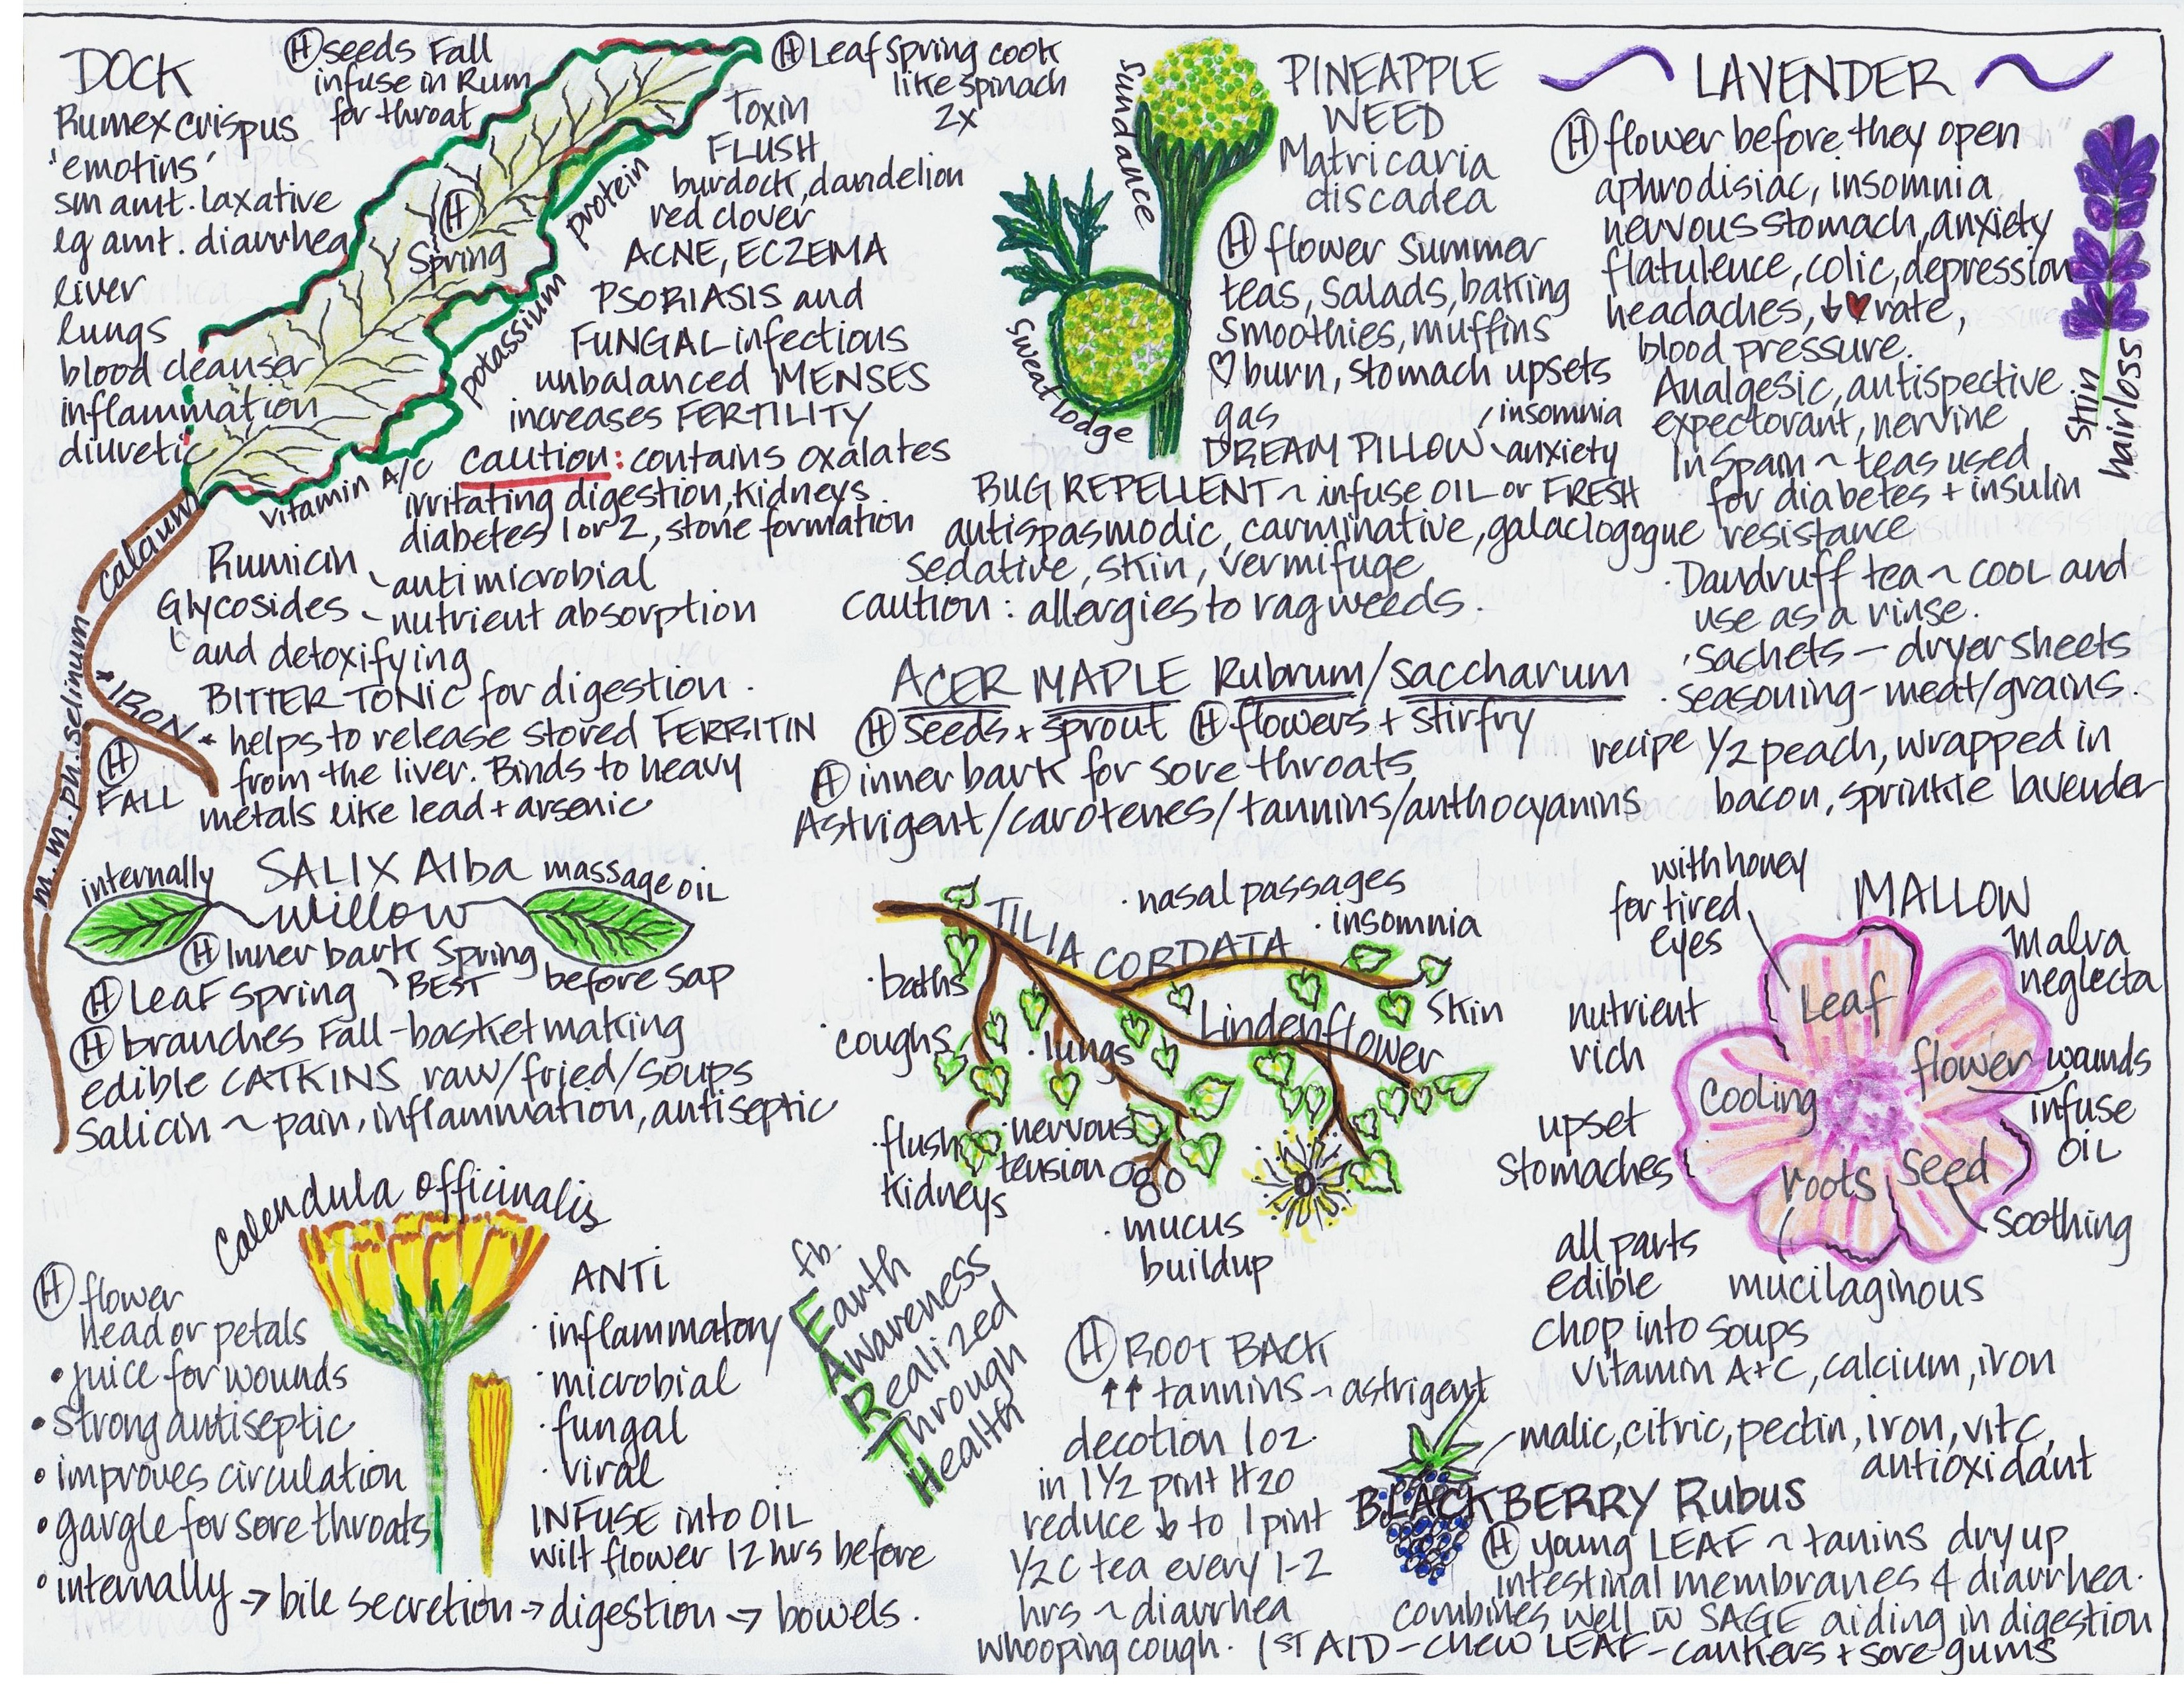 DOCK
Rumex crispus
'emotins'
sm amt. laxative
lg amt. diarrhea
liver
lungs
blood cleanser
inflammation
diuretic
(H) seeds Fall
infuse in Rum
for throat
(H)
Spring
protein
potassium
vitamin A/C
calcium
*IRON*
m. m. ph. selinum
(H)
FALL
(H) Leaf Spring cook
like spinach
2x
Toxin
FLUSH
burdock, dandelion
red clover
ACNE, ECZEMA
PSORIASIS and
FUNGAL infections
unbalanced MENSES
increases FERTILITY
caution: contains oxalates
irritating digestion, kidneys.
diabetes 1 or 2, stone formation
Rumicin
antimicrobial
Glycosides - nutrient absorption
and detoxifying
BITTER TONIC for digestion.
helps to release stored FERRITIN
from the liver. Binds to heavy
metals like lead + arsenic
sundance
sweat lodge
PINEAPPLE
WEED
Matricaria
discadea
(H) flower summer
teas, salads, baking
smoothies, muffins
♡burn, stomach upsets
gas
insomnia
DREAM PILLOW
anxiety
BUG REPELLENT ~ infuse OIL or FRESH
antispasmodic, carminative, galaclogogue
sedative, skin, vermifuge
caution: allergies to ragweeds.
LAVENDER
(H) flower before they open
aphrodisiac, insomnia
nervous stomach, anxiety
flatulence, colic, depression
headaches, ↓♥rate,
blood pressure.
Analgesic, antispective
expectorant, nervine
In Spain ~ teas used
for diabetes + insulin
resistance
skin
hairloss
·Dandruff tea ~ cool and
use as a rinse.
·sachets - dryer sheets
·seasoning - meat/grains.
recipe 1/2 peach, wrapped in
bacon, sprinkle lavender
ACER MAPLE Rubrum/saccharum
(H) seeds + sprout (H) flowers + stirfry
(H) inner bark for sore throats
Astrigent/carotenes/tannins/anthocyanins
internally
SALIX Alba
massage oil
willow
(H) Inner bark Spring
BEST
before sap
(H) Leaf Spring
(H) branches Fall - basket making
edible CATKINS raw/fried/soups
Salicin ~ pain, inflammation, antiseptic
TILIA CORDATA
·nasal passages
·insomnia
·baths
skin
·coughs
·lungs
Lindenflower
·flush
kidneys
·nervous
tension
·mucus
buildup
with honey
for tired
eyes
MALLOW
Malva
neglecta
Leaf
flower
wounds
infuse
OIL
cooling
roots
seed
soothing
nutrient
rich
upset
stomaches
all parts
edible
mucilaginous
chop into soups
vitamin A+C, calcium, iron
Calendula officinalis
(H) flower
head or petals
• juice for wounds
• strong antiseptic
• improves circulation
• gargle for sore throats
• internally → bile secretion → digestion → bowels.
ANTI
·inflammatory
·microbial
·fungal
·viral
INFUSE into OIL
wilt flower 12 hrs before
fb.
Earth
Awareness
Realized
Through
Health
(H) ROOT BACK
↑↑ tannins ~ astrigent
decotion 1 oz.
in 1 1/2 pint H20
reduce ↓ to 1 pint
1/2 c tea every 1-2
hrs ~ diarrhea
whooping cough.
malic, citric, pectin, iron, vit C,
antioxidant
BLACKBERRY Rubus
(H) young LEAF ~ tanins dry up
intestinal membranes 4 diarrhea.
combines well w SAGE aiding in digestion
1ST AID - chew LEAF - cankers + sore gums